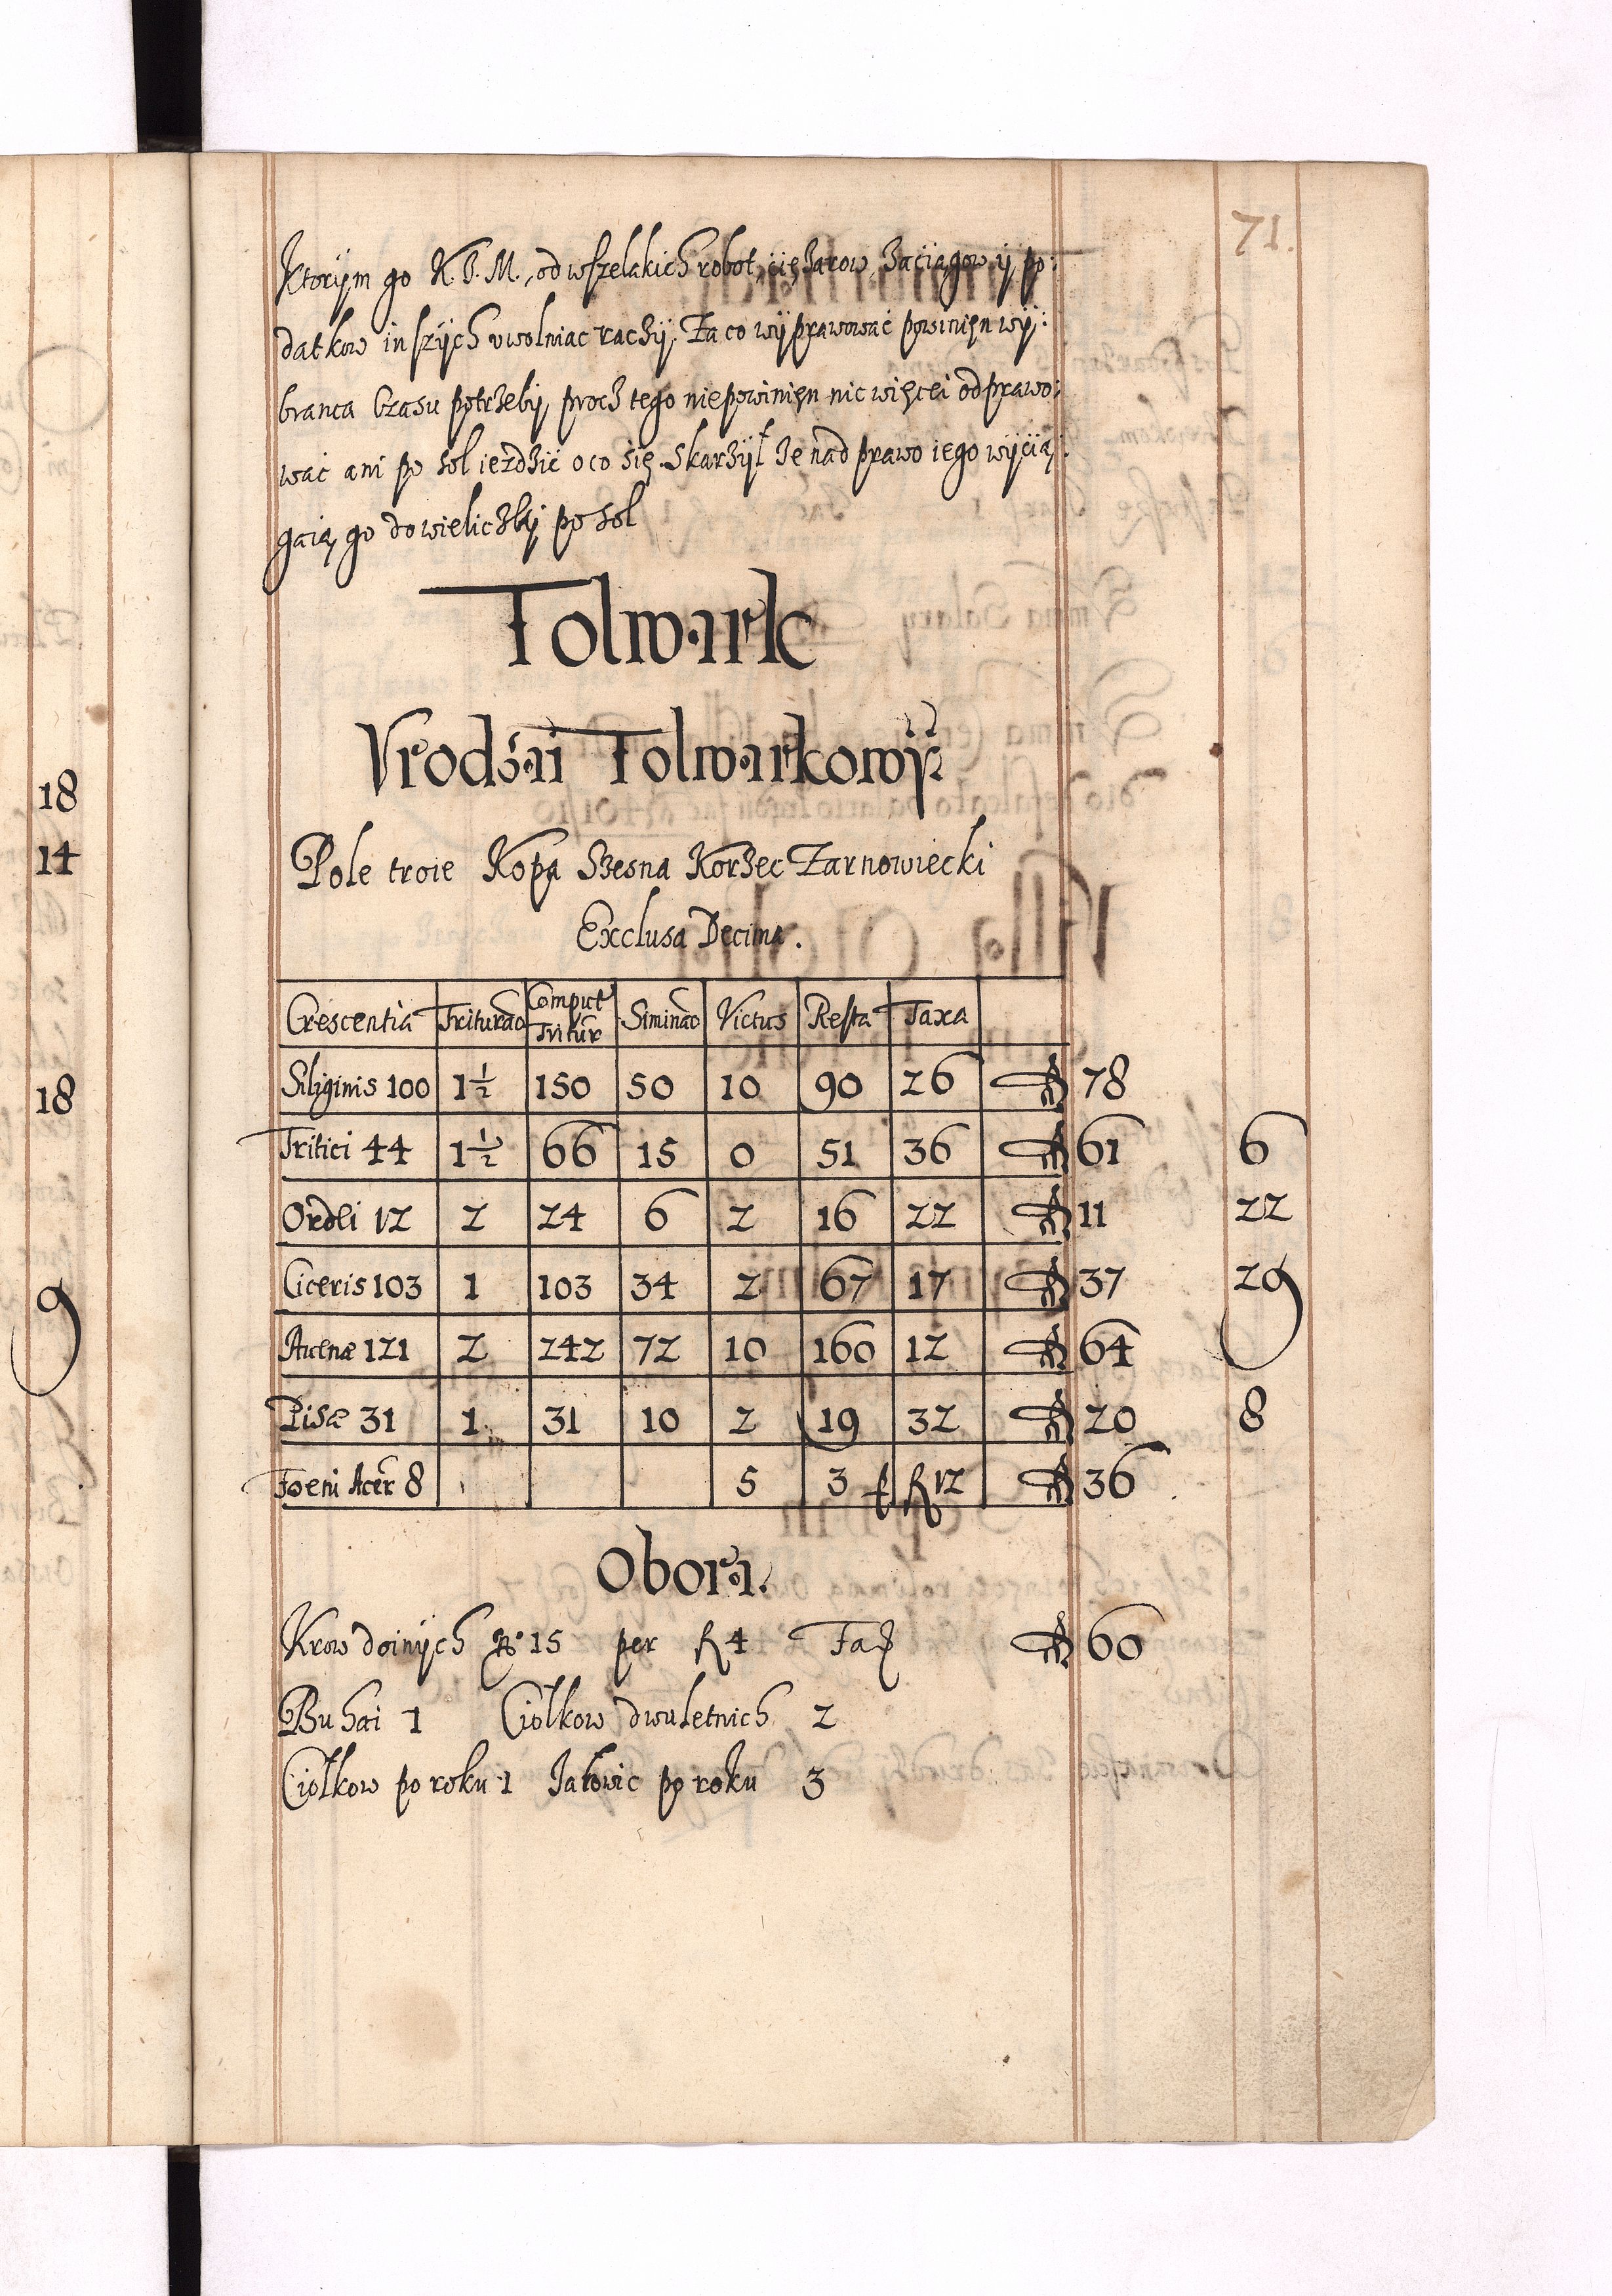 71.
Ktorym go K. J. M., od wszelakich robot, ciężarow, zaciągow y po:
datkow inszych uwolniac raczy. Za co wyprawować powinięn wy:
branca czasu potrzeby, procz tego niepowinięn nic więcei odprawo:
wać ani po sol ieździć o co się skarżył że nad prawo iego wycią:
gaią go do wieliczki po sol
Folwark
Vrodzai Folwarkowy.
Pole troie Kopa Szesna Korzec Zarnowiecki
Exclusa Decima.
Crescentia Triturão Comput Tritur Siminão Victus Resta Taxa
Siliginis 100 1½ 150 50 10 90 26 78
Tritici 44 1½ 66 15 0 51 36 61 6
Ordei 12 2 24 6 2 16 22 11 22
Ciceris 103 1 103 34 2 67 17 37 29
Avenæ 121 2 242 72 10 160 12 64
Pisæ 31 1 31 10 2 19 32 20 8
Foeni Acer 8 5 3 f fl 12 36
Obora.
Krow doinych No 15 per fl 4 Fac 60
Buhai 1 Ciolkow dwuletnich 2
Ciołkow po roku 1 Jałowic po roku 3
18
14
18
9